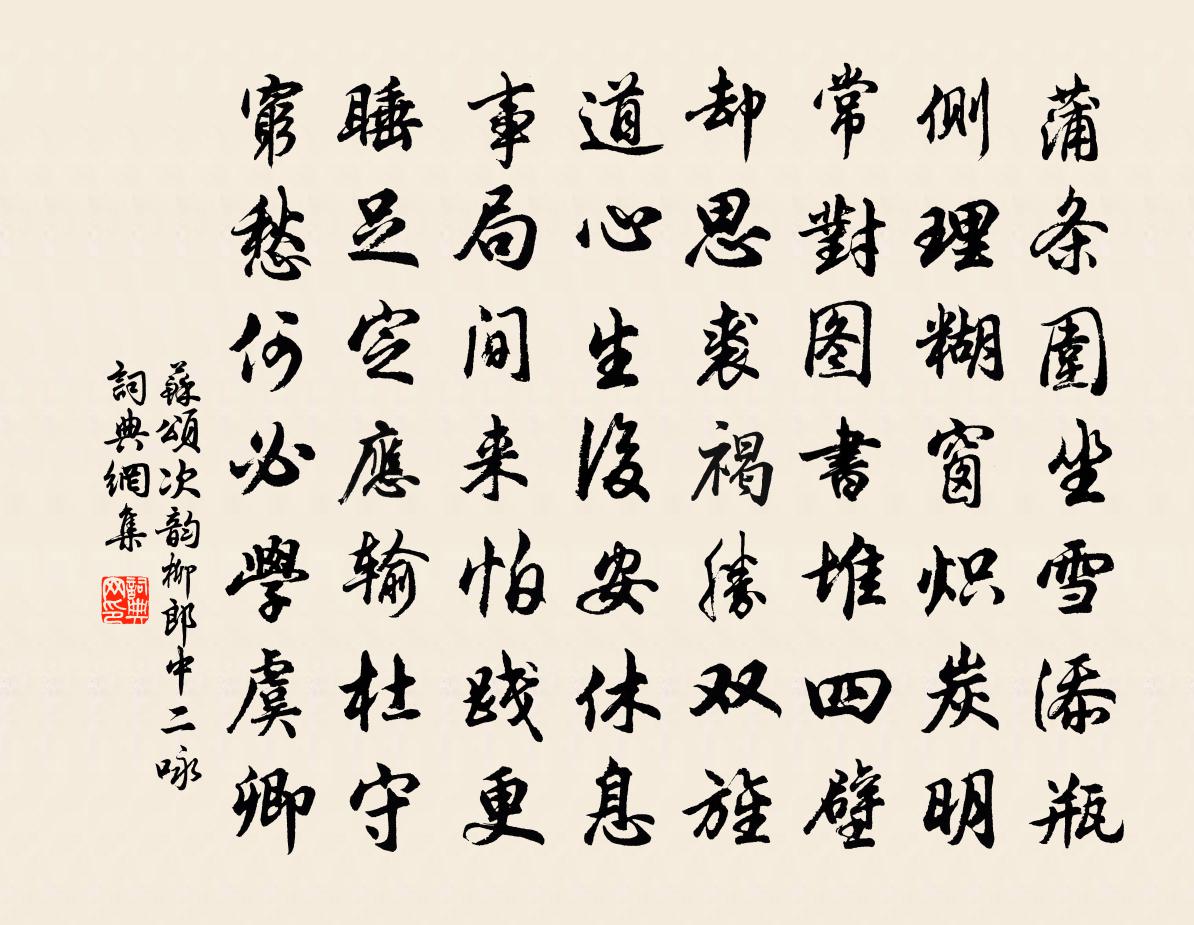 蒲条圍坐雪添瓶
側理糊窗炽炭明
常對图書堆四壁
却思裘褐勝双旌
道心生後安休息
事局间来怕践更
睡足定應输杜守
窮愁何必學虞卿
蘇頌次韵柳郎中二咏
詞典網集